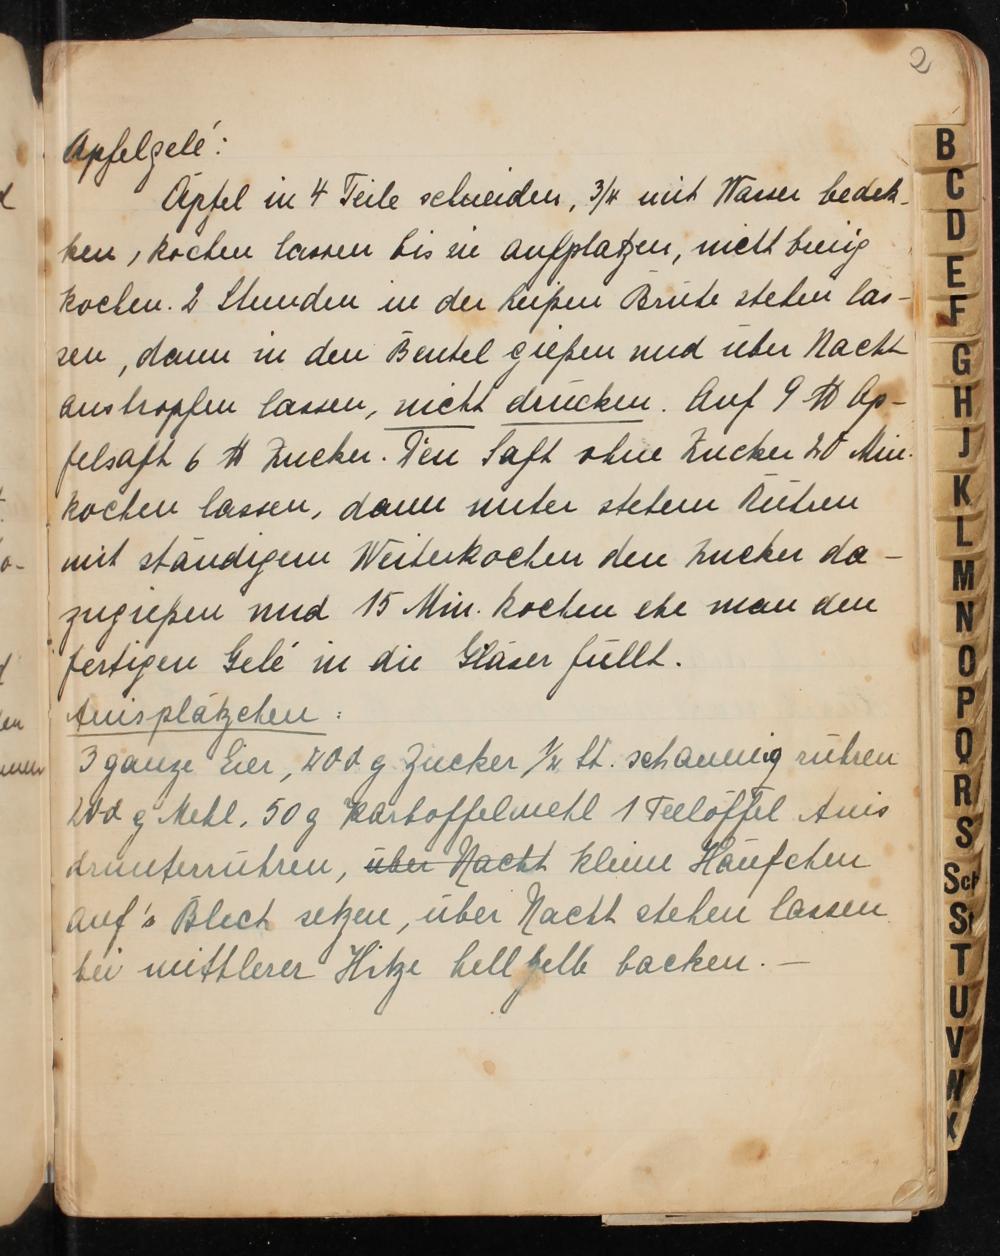 2
Apfelgelé:
Äpfel in 4 Teile schneiden, 3/4 mit Wasser bedek-
ken, kochen lassen bis sie aufplatzen, nicht breiig
kochen. 2 Stunden in der heißen Brühe stehen las-
sen, dann in den Beutel gießen und über Nacht
austropfen lassen, nicht drücken. Auf 9 ℔ Ap-
felsaft 6 ℔ Zucker. Den Saft ohne Zucker 20 Min.
kochen lassen, dann unter stetem Rühren
mit ständigem Weiterkochen den Zucker da-
zugießen und 15 Min. kochen ehe man den
fertigen Gelé in die Gläser füllt.
Anisplätzchen:
3 ganze Eier, 200 g Zucker 1/2 St. schaumig rühren
200 g Mehl, 50 g Kartoffelmehl 1 Teelöffel Anis
drunterrühren, über Nacht kleine Häufchen
auf's Blech setzen, über Nacht stehen lassen
bei mittlerer Hitze hellgelb backen. —
B
C
D
E
F
G
H
J
K
L
M
N
O
P
Q
R
S
Sch
St
T
U
V